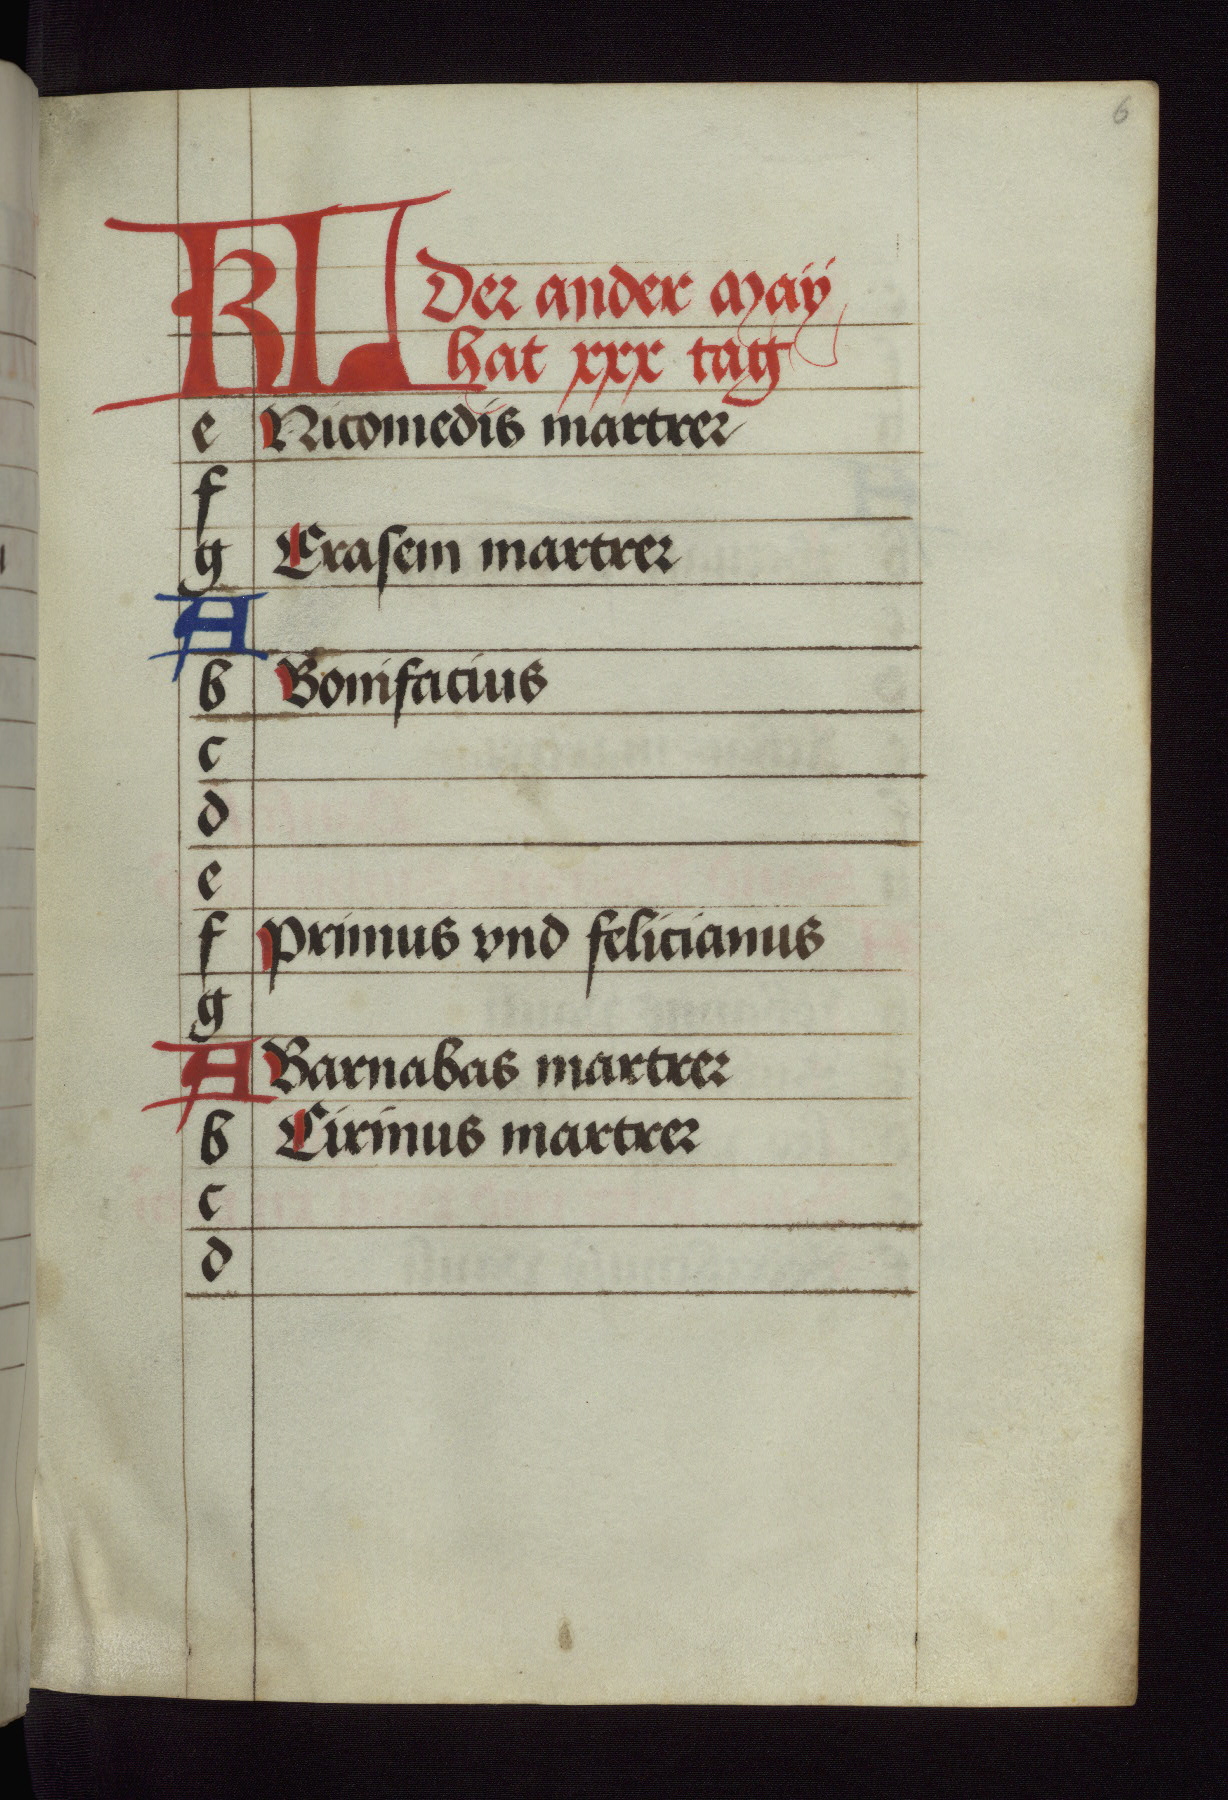 6
KL Der ander May
hat xxx tag
e Nicomedis martrer
f
g Erasem martrer
A
b Bonifacius
c
d
e
f Primus vnd felicianus
g
A Barnabas martrer
b Cirinus martrer
c
d